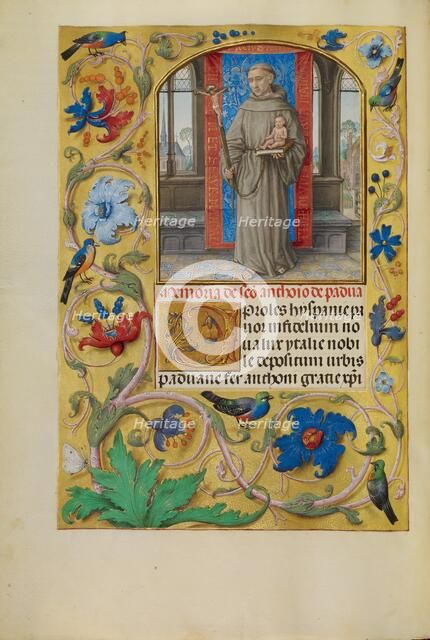 Memoria de sco anthoio de padua
Proles hyspanie pa
uor infidelium no
ua lux ytalie nobi
le depositum urbis
paduane fer anthoni gratie xpi
Heritage
Heritage
Heritage
Heritage
Heritage
Heritage
Heritage
Heritage